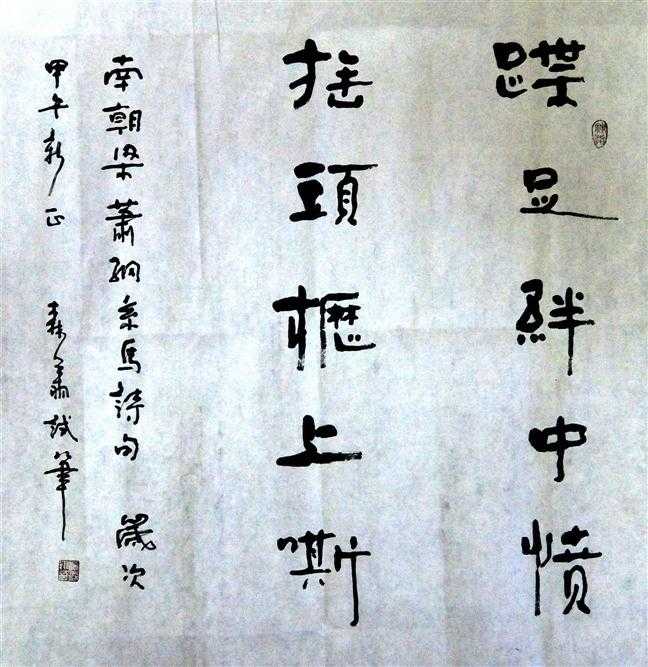 蹀足絆中憤
搖頭櫪上嘶
南朝梁蕭綱系馬詩句 歲次
甲午新正 試筆